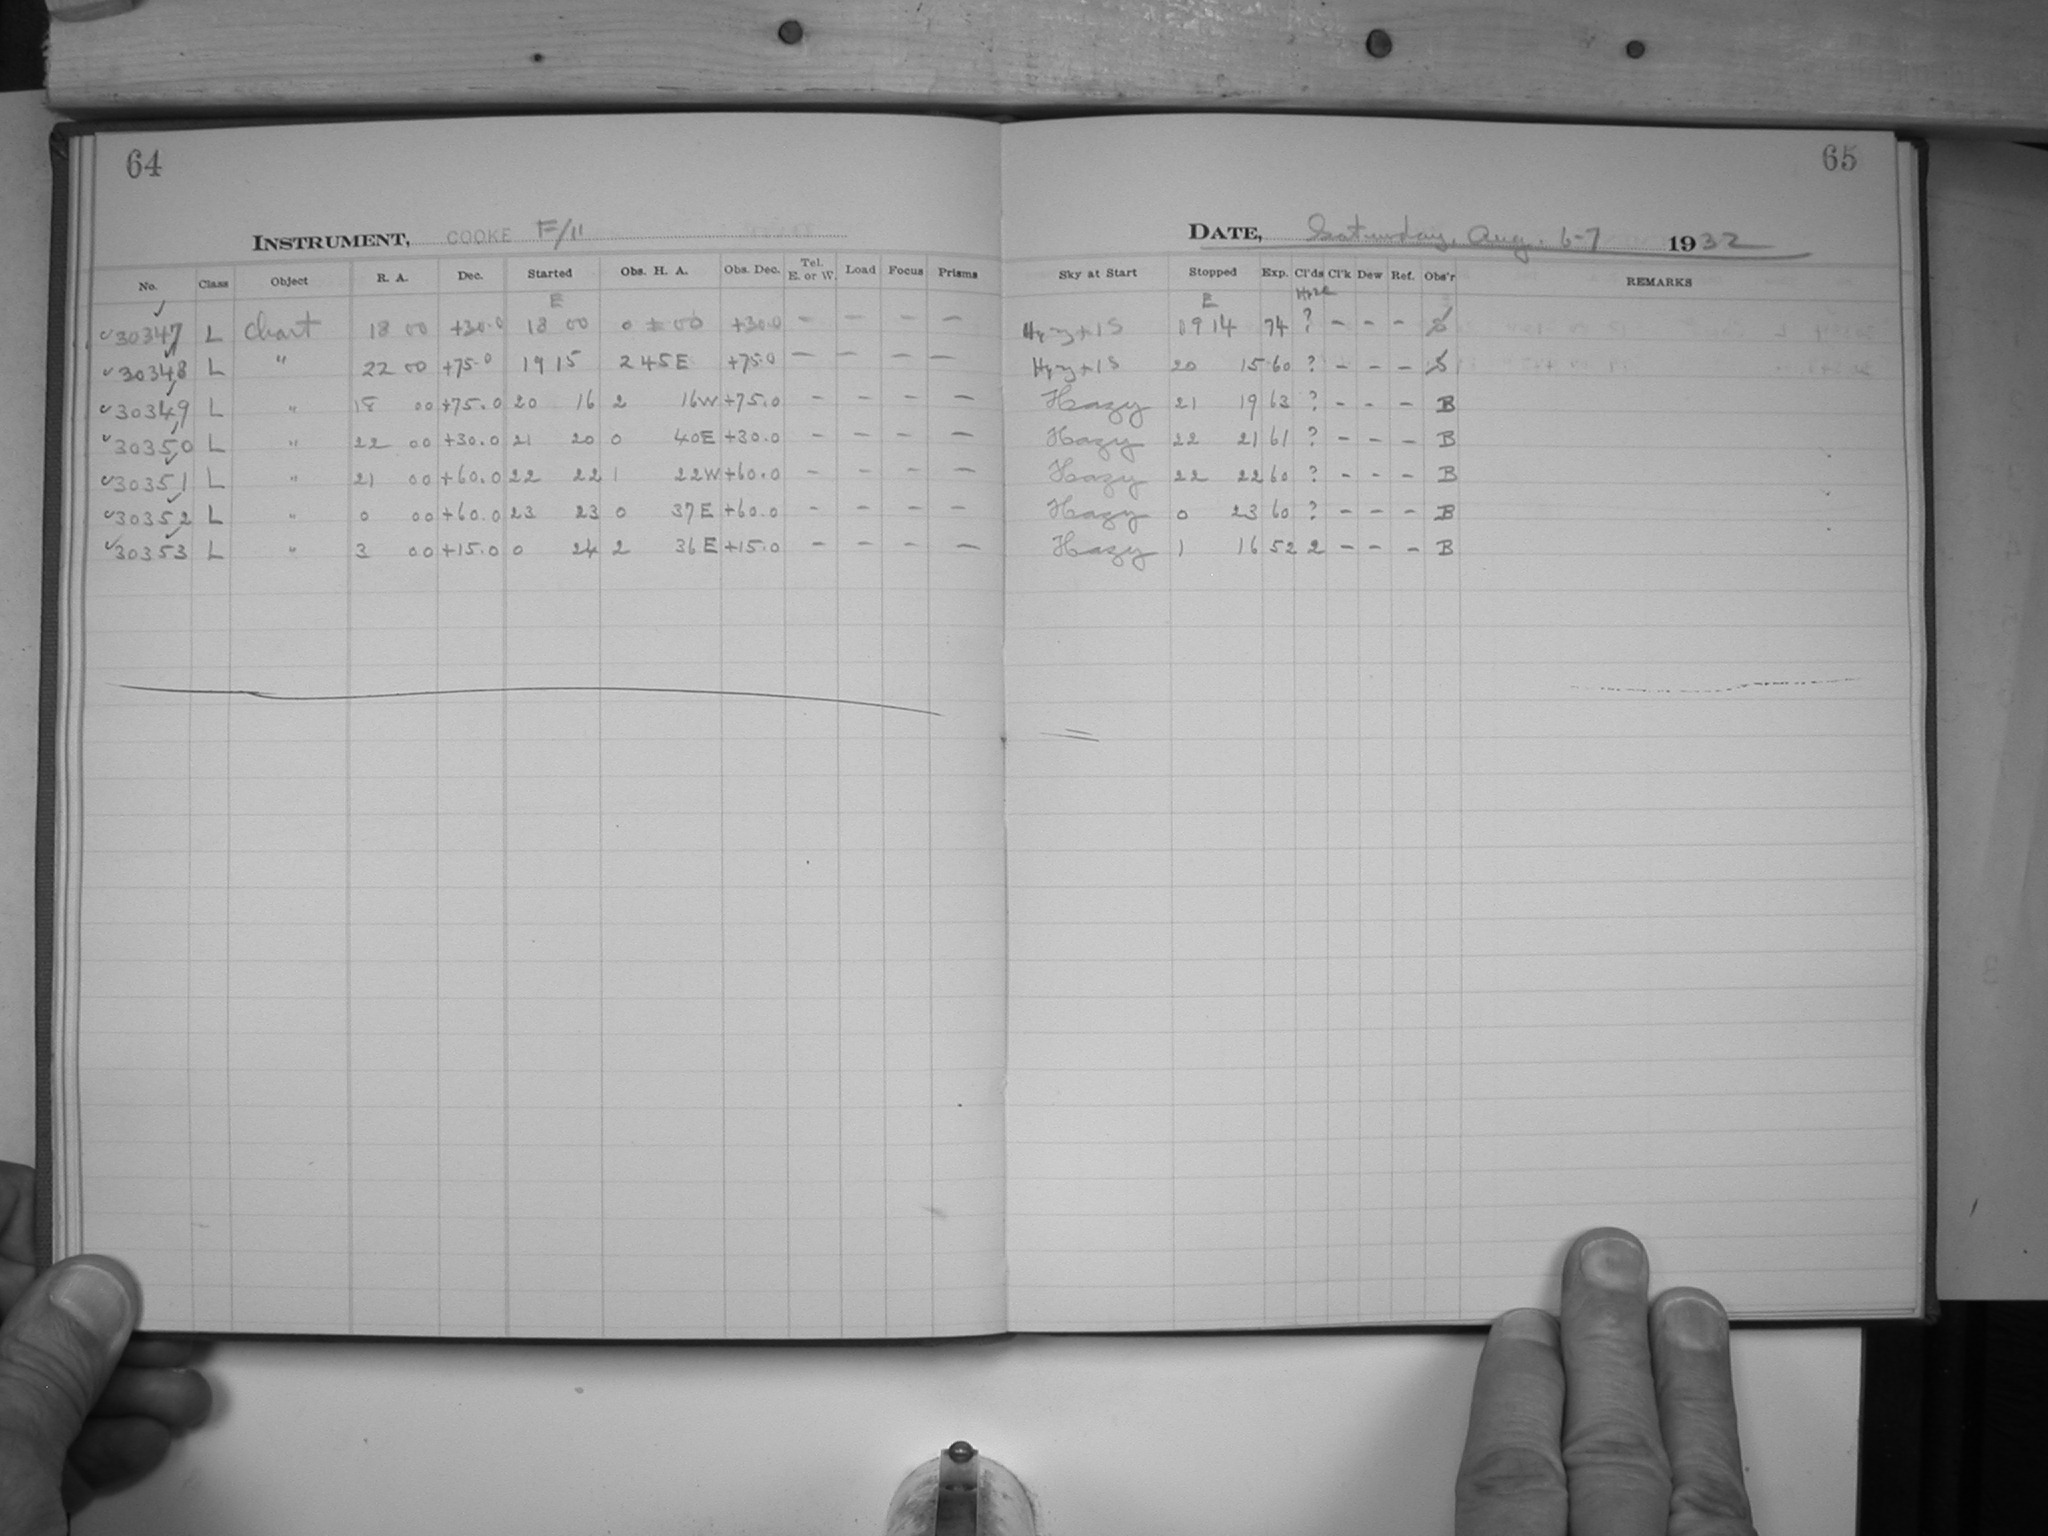 64
65
INSTRUMENT, COOKE F/11
DATE, Saturday, Aug. 6-7 1932
No. Class Object R. A. Dec. Started Obs. H. A. Obs. Dec. Tel. E. or W. Load Focus Prisms Sky at Start Stopped Exp. Cl'ds Cl'k Dew Ref. Obs'r REMARKS
E E Haze
30347 L Chart 18 00 +30.0 18 00 0 ± 00 +30.0 - - - - Hzy+1S 19 14 74 ? - - - S
30348 L " 22 00 +75.0 19 15 2 45E +75.0 - - - - Hzy+1S 20 15 60 ? - - - S
30349 L " 18 00 +75.0 20 16 2 16W +75.0 - - - - Hazy 21 19 63 ? - - - B
30350 L " 22 00 +30.0 21 20 0 40E +30.0 - - - - Hazy 22 21 61 ? - - - B
30351 L " 21 00 +60.0 22 22 1 22W +60.0 - - - - Hazy 22 22 60 ? - - - B
30352 L " 0 00 +60.0 23 23 0 37E +60.0 - - - - Hazy 0 23 60 ? - - - B
30353 L " 3 00 +15.0 0 24 2 36E +15.0 - - - - Hazy 1 16 52 2 - - - B